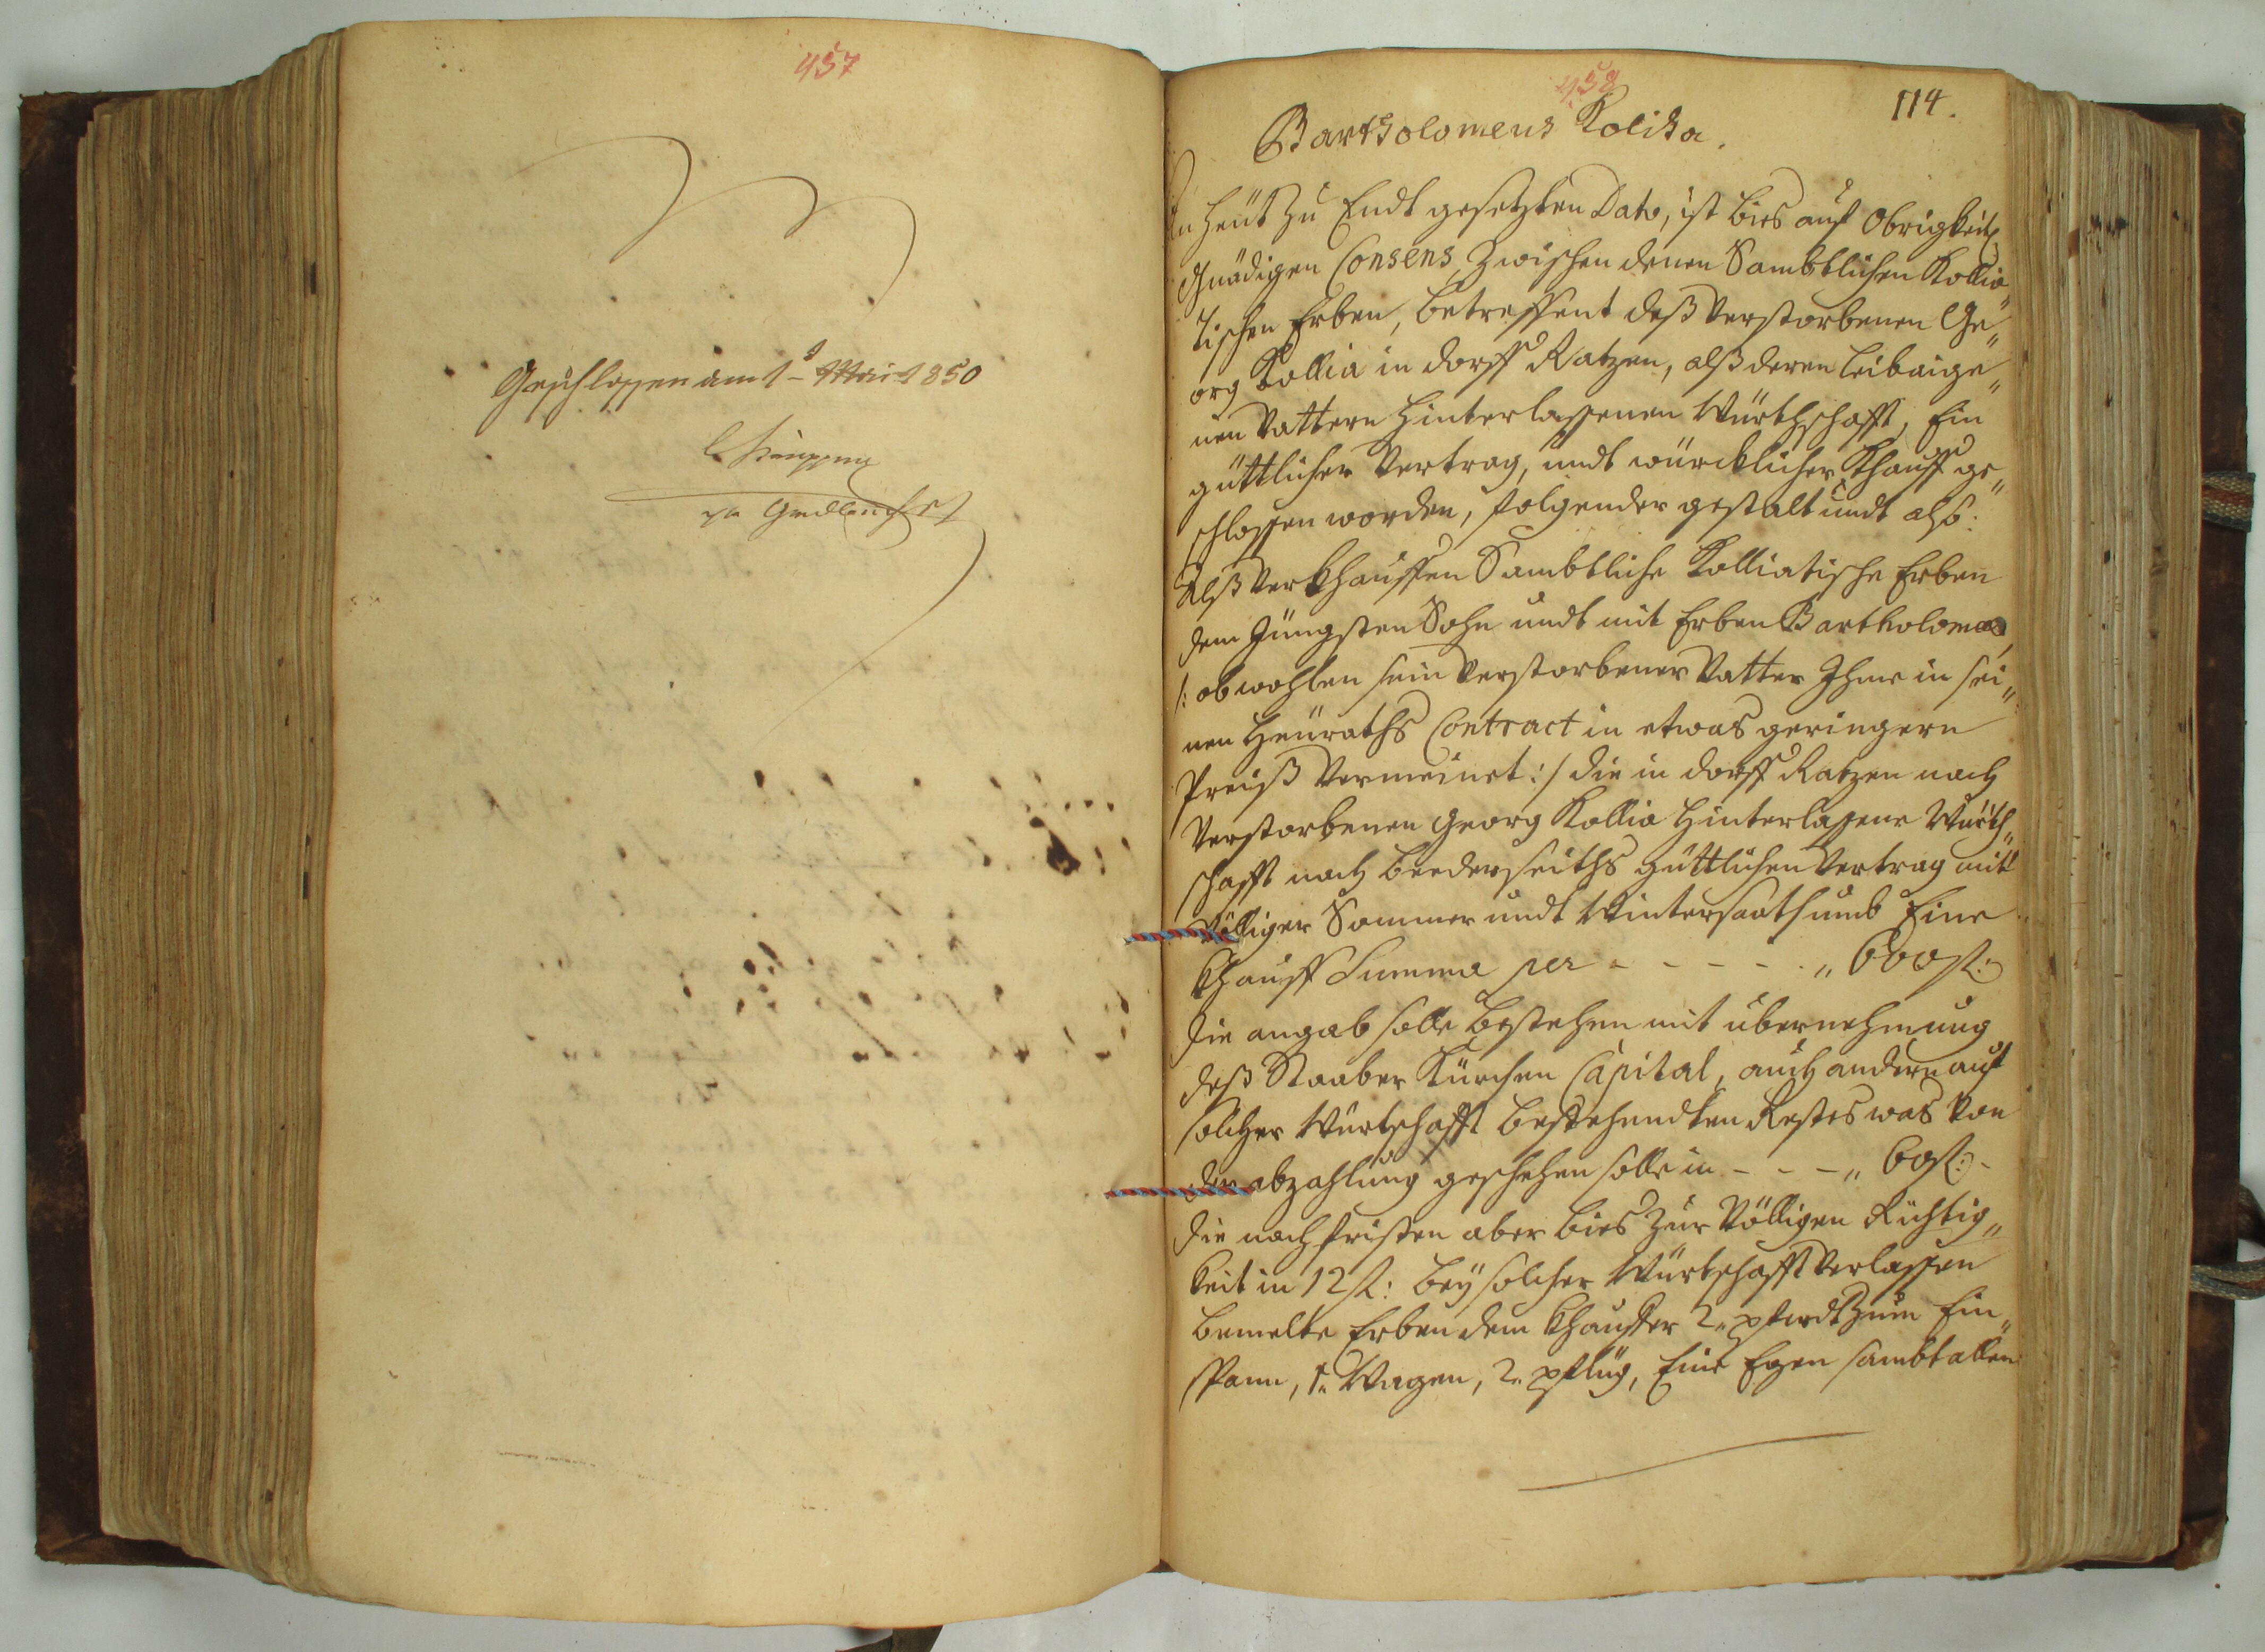 457
Geschlossen am 1t Mai 1850
458
114.
Bartholomeus Kolika.
An heut zu Endt gesetzten Dato, ist bies auf Obrigkeitl:
Gnädigen Consens, zwischen denen Sambtlichen Kollia„
tischen Erben, betreffent deß Verstorbenen Ge„
org Kollia in dorff Ratzen, alß deren leibaige„
nen Vattern hinterlassenen Würthschafft, Ein
güttlicher Vertrag, undt würcklicher Khauff ge„
schlossen worden, folgender gestalt undt also:
Alß Verkhauffen Sambtliche Kolliatische Erben
dem Jüngsten Sohn undt mit Erben Bartholomeo,
/: obwohlen sein Verstorbener Vatter Ihme in sei„
nen Heüraths Contract in etwas geringern
Preiß Vermeinet :/ die in dorff Ratzen nach
Verstorbenen Georg Kollia Hinterlassene Würth„
schafft nach beederseiths güttlichen Vertrag mit
Völliger Sommer undt Wintersaath umb Eine
Khauff Summa per - - - - - „ 600 fl:
Die angab solle bestehen mit übernehmung
deß Staaber Kürchen Capital, auch andern auf
solcher Würtschafft bestehendten Restes was von
der abzahlung geschehen solle in - - - „ 60 fl: -
Die nachfristen aber bies zur Völligen Richtig„
keit in 12 fl: bey solcher Würtschafft Verlassen
bemelte Erben dem Khauffer 2„ pferdt zum Ein„
spann, 1„ Wagen, 2„ pflüg, Eine Egen sambt allen